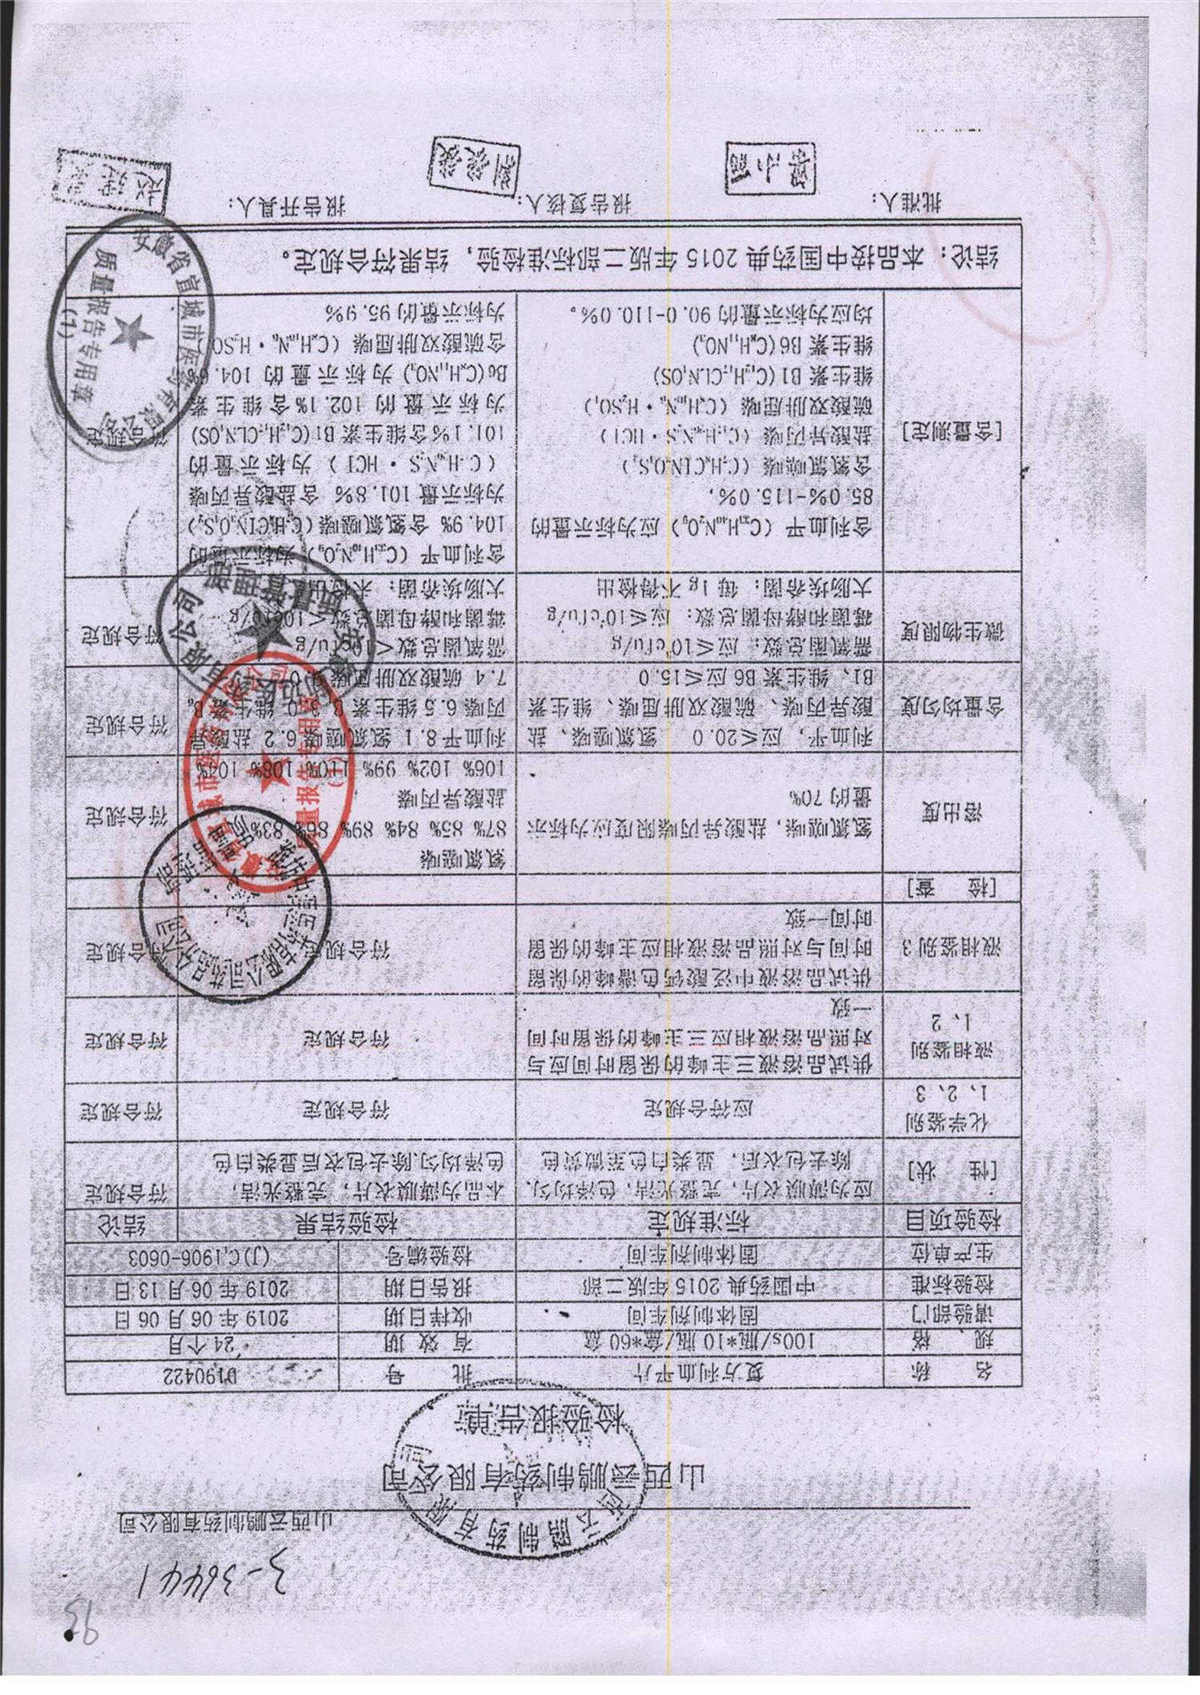 95
3-36441
山西云鹏制药有限公司
山西云鹏制药有限公司
检验报告单
名 称 复方利血平片 批 号 D190422
规 格 100s/瓶*10瓶/盒*60盒 有 效 期 24个月
请验部门 固体制剂车间 收样日期 2019年06月06日
检验标准 中国药典2015年版二部 报告日期 2019年06月13日
生产单位 固体制剂车间 检验编号 (J)C,1906-0603
检验项目 标准规定 检验结果 结论
[性 状]
应为薄膜衣片，完整光洁，色泽均匀.
除去包衣后，显类白色至微黄色
本品为薄膜衣片，完整光洁，
色泽均匀.除去包衣后显类白色
符合规定
化学鉴别
1、2、3
应符合规定
符合规定
符合规定
液相鉴别
1、2
供试品溶液三主峰的保留时间应与
对照品溶液相应三主峰的保留时间
一致
符合规定
符合规定
液相鉴别3
供试品溶液中泛酸钙色谱峰的保留
时间与对照品溶液相应主峰的保留
时间一致
符合规定
符合规定
[检 查]
溶出度
氢氯噻嗪，盐酸异丙嗪限度应为标示
量的70%
氢氯噻嗪
87% 85% 84% 89% 86% 83%
盐酸异丙嗪
106% 102% 99% 110% 108% 104%
符合规定
含量均匀度
利血平，应≤20.0 氢氯噻嗪、盐
酸异丙嗪、硫酸双肼屈嗪、维生素
B1、维生素B6应≤15.0
利血平8.1 氢氯噻嗪6.2 盐酸异
丙嗪6.5 维生素
7.4 硫酸双肼屈嗪
符合规定
微生物限度
需氧菌总数：应≤10³cfu/g
霉菌和酵母菌总数：应≤10²cfu/g
大肠埃希菌：每1g不得检出
需氧菌总数＜10cfu/g
霉菌和酵母菌总数＜10cfu/g
大肠埃希菌：未检出
符合规定
[含量测定]
含利血平（C₃₃H₄₀N₂O₉）应为标示量的
85.0%-115.0%，
含氢氯噻嗪（C₇H₈ClN₃O₄S₂）
盐酸异丙嗪（C₁₇H₂₀N₂S·HCl）
硫酸双肼屈嗪（C₈H₁₀N₆·H₂SO₄）
维生素B1(C₁₂H₁₇ClN₄OS)
维生素B6(C₈H₁₁NO₃)
均应为标示量的90.0-110.0%。
含利血平（C₃₃H₄₀N₂O₉）为标示量的
104.9% 含氢氯噻嗪(C₇H₈ClN₃O₄S₂)
为标示量101.8% 含盐酸异丙嗪
（C₁₇H₂₀N₂S·HCl）为标示量的
101.1%含维生素B1(C₁₂H₁₇ClN₄OS)
为标示量的102.1%含维生素
B6(C₈H₁₁NO₃)为标示量的104.6%
含硫酸双肼屈嗪（C₈H₁₀N₆·H₂SO
为标示量的95.9%
符合规定
结论：本品按中国药典2015年版二部标准检验，结果符合规定。
批准人： 报告复核人： 报告开具人：
安徽省宣城市医药有限公司
质量报告专用章
(1)